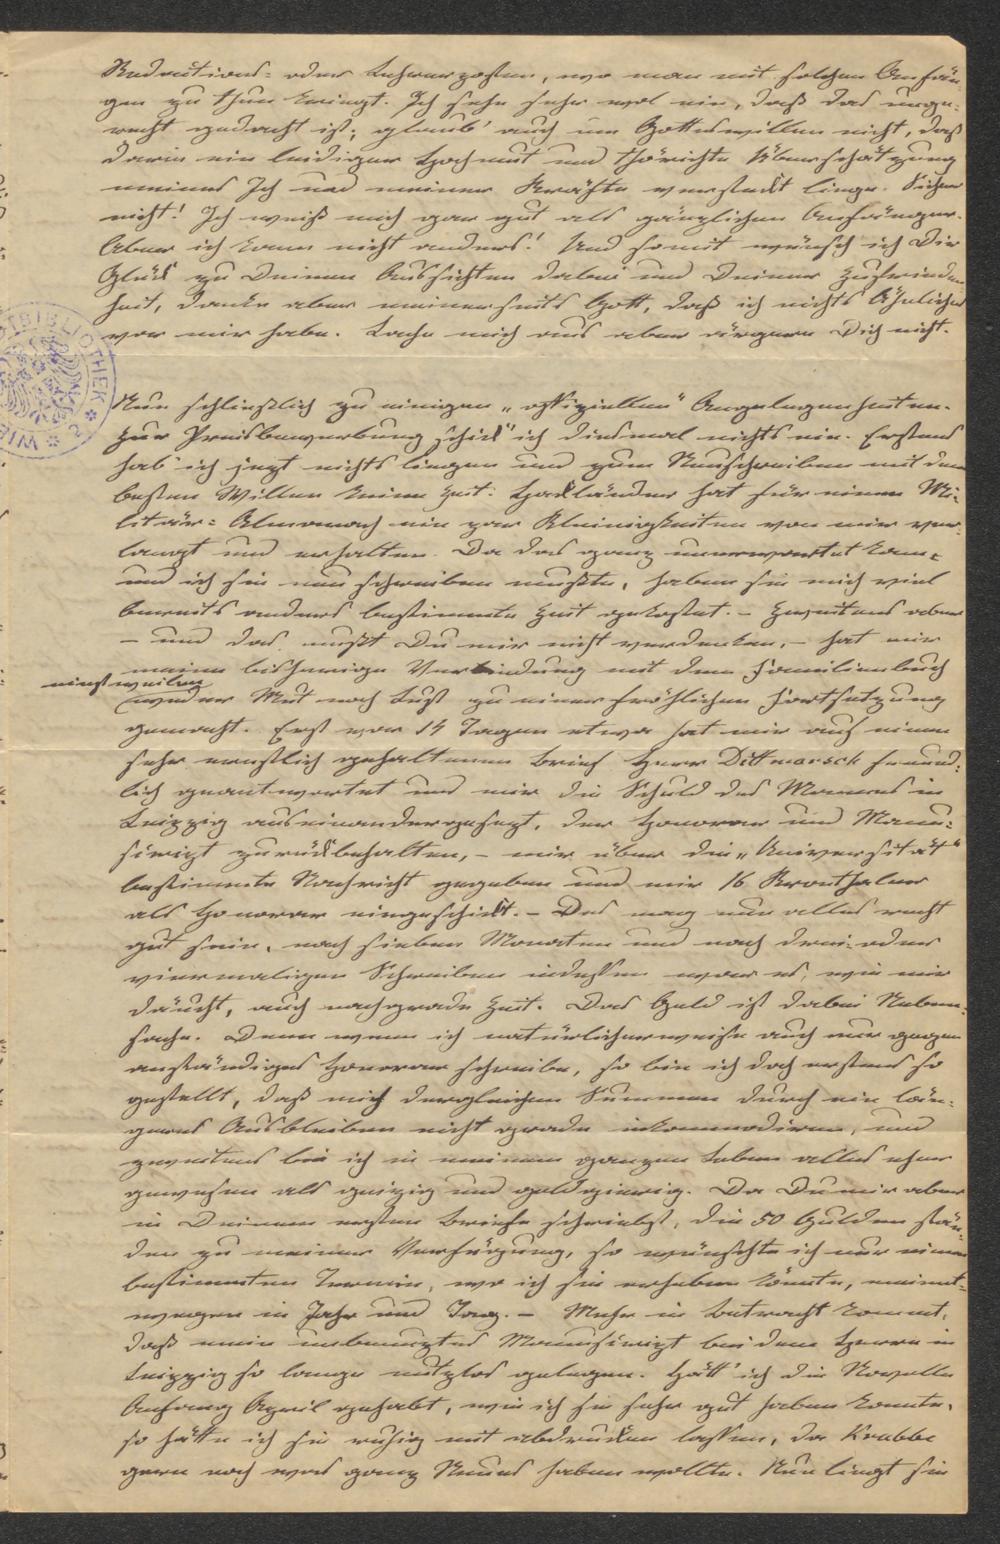 Redactions- oder Lehrerposten, wo man mit solchen Anfän-
gen zu thun kriegt. Ich sehe sehr wol ein, daß das unge-
recht gedacht ist; glaub' auch um Gotteswillen nicht, daß
darin ein leidiger Hochmut und thörichte Überschätzung
meines Ich und meiner Kräfte versteckt liege. Sicher
nicht! Ich weiß mich gar gut als gänzlichen Anfänger.
Aber ich kann nicht anders! Und somit wünsch ich Dir
Glück zu Deinen Aussichten dabei und Deiner Zufrieden-
heit, danke aber meinerseits Gott, daß ich nichts Ähnliches
vor mir habe. Lache mich aus aber ärgere Dich nicht.
Nun schließlich zu einigen „offiziellen" Angelegenheiten.
Zur Preisbewerbung schick' ich diesmal nichts ein. Erstens
hab' ich jezt nichts liegen und zum Neuschreiben mit dem
besten Willen keine Zeit: Hackländer hat für einen Mi-
litär-Almanach ein par Kleinigkeiten von mir ver-
langt und erhalten. Da das ganz unerwartet kam
und ich sie neu schreiben mußte, haben sie mich viel
bereits anders bestimmte Zeit gekostet. – Zweitens aber
– und das mußt Du mir nicht verdenken, – hat mir
meine bisherige Verbindung mit dem Familienbuch
einstweilen
weder Mut noch Lust zu einer fröhlichen Fortsetzung
gemacht. Erst vor 14 Tagen etwa hat mir auf einen
sehr ernstlich gehaltenen Brief Herr Dittmarsch freund-
lich geantwortet und mir die Schuld des Mannes in
Leipzig auseinandergesezt, der Honorar und Manu-
skript zurückbehalten, – mir über die „Universität"
bestimmte Nachricht gegeben und mir 16 Kronthaler
als Honorar eingeschickt. – Das mag nun alles recht
gut sein, nach sieben Monaten und nach drei- oder
viermaligem Schreiben indessen war es, wie mir
däucht, auch nachgrade Zeit. Das Geld ist dabei Neben-
sache. Denn wenn ich natürlicherweise auch nur gegen
anständiges Honorar schreibe, so bin ich doch erstens so
gestellt, daß mich dergleichen Summen durch ein län-
geres Ausbleiben nicht grade inkommodiren, und
zweitens bin ich in meinem ganzen Leben alles eher
gewesen als geizig und geldgierig. Da Du mir aber
in Deinem ersten Briefe schriebst, die 50 Gulden stän-
den zu meiner Verfügung, so wünschte ich nur einen
bestimmten Termin, wo ich sie erheben könnte, meinet-
wegen in Jahr und Tag. – Mehr in Betracht kommt,
daß mein unbenuztes Manuskript bei dem Herrn in
Leipzig so lange nutzlos gelegen. Hätt' ich die Novelle
Anfang April gehabt, wie ich sie sehr gut haben konnte,
so hätte ich sie ruhig mit abdrucken lassen, da Krabbe
gern noch was ganz Neues haben wollte. Nun liegt sie